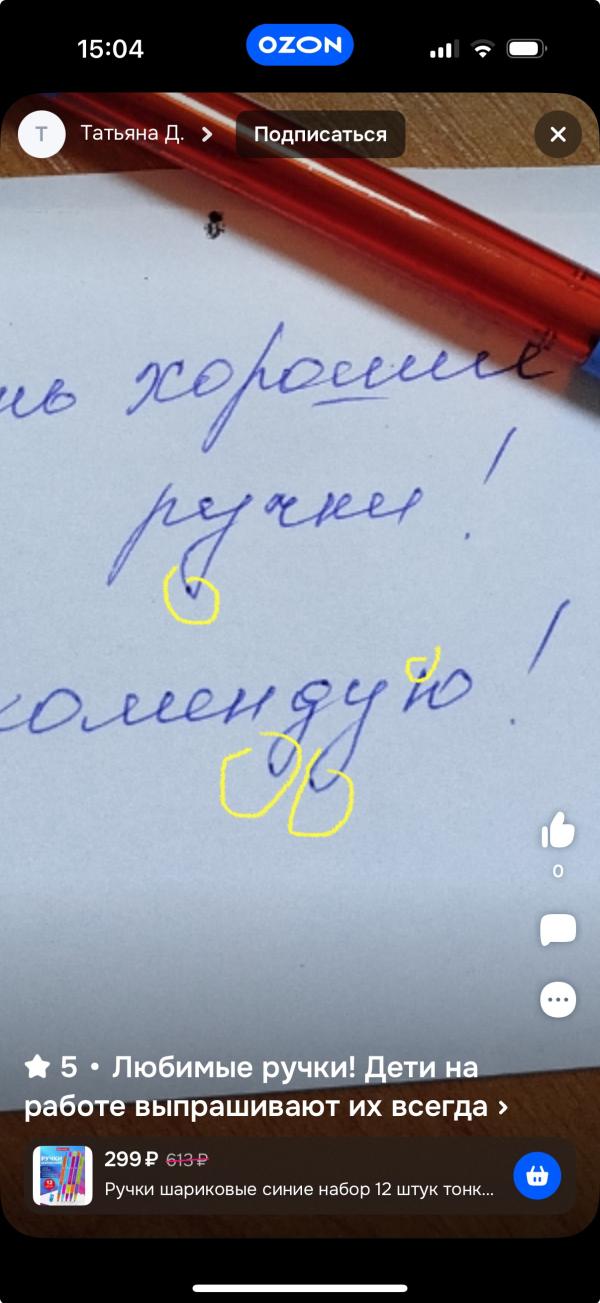 15:04
OZON
Т
Татьяна Д.
Подписаться
нь хорошие
ручки!
комендую!
0
5 • Любимые ручки! Дети на
работе выпрашивают их всегда
299 ₽ 613 ₽
Ручки шариковые синие набор 12 штук тонк...